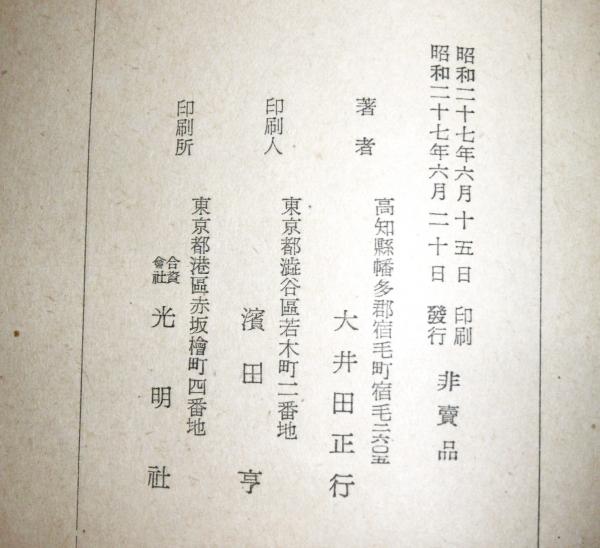 昭和二十七年六月十五日 印刷
昭和二十七年六月二十日 發行
非賣品
著者
高知縣幡多郡宿毛町宿毛二六〇五
大井田正行
印刷人
東京都澁谷區若木町二番地
濱田亨
印刷所
東京都港區赤坂檜町四番地
合資會社 光明社